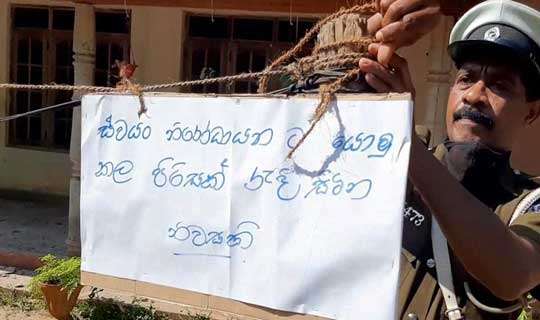 ස්වයං නිරෝධායන ට යොමු
කල පිරිසක් රැදී සිටින
නිවසකි
473